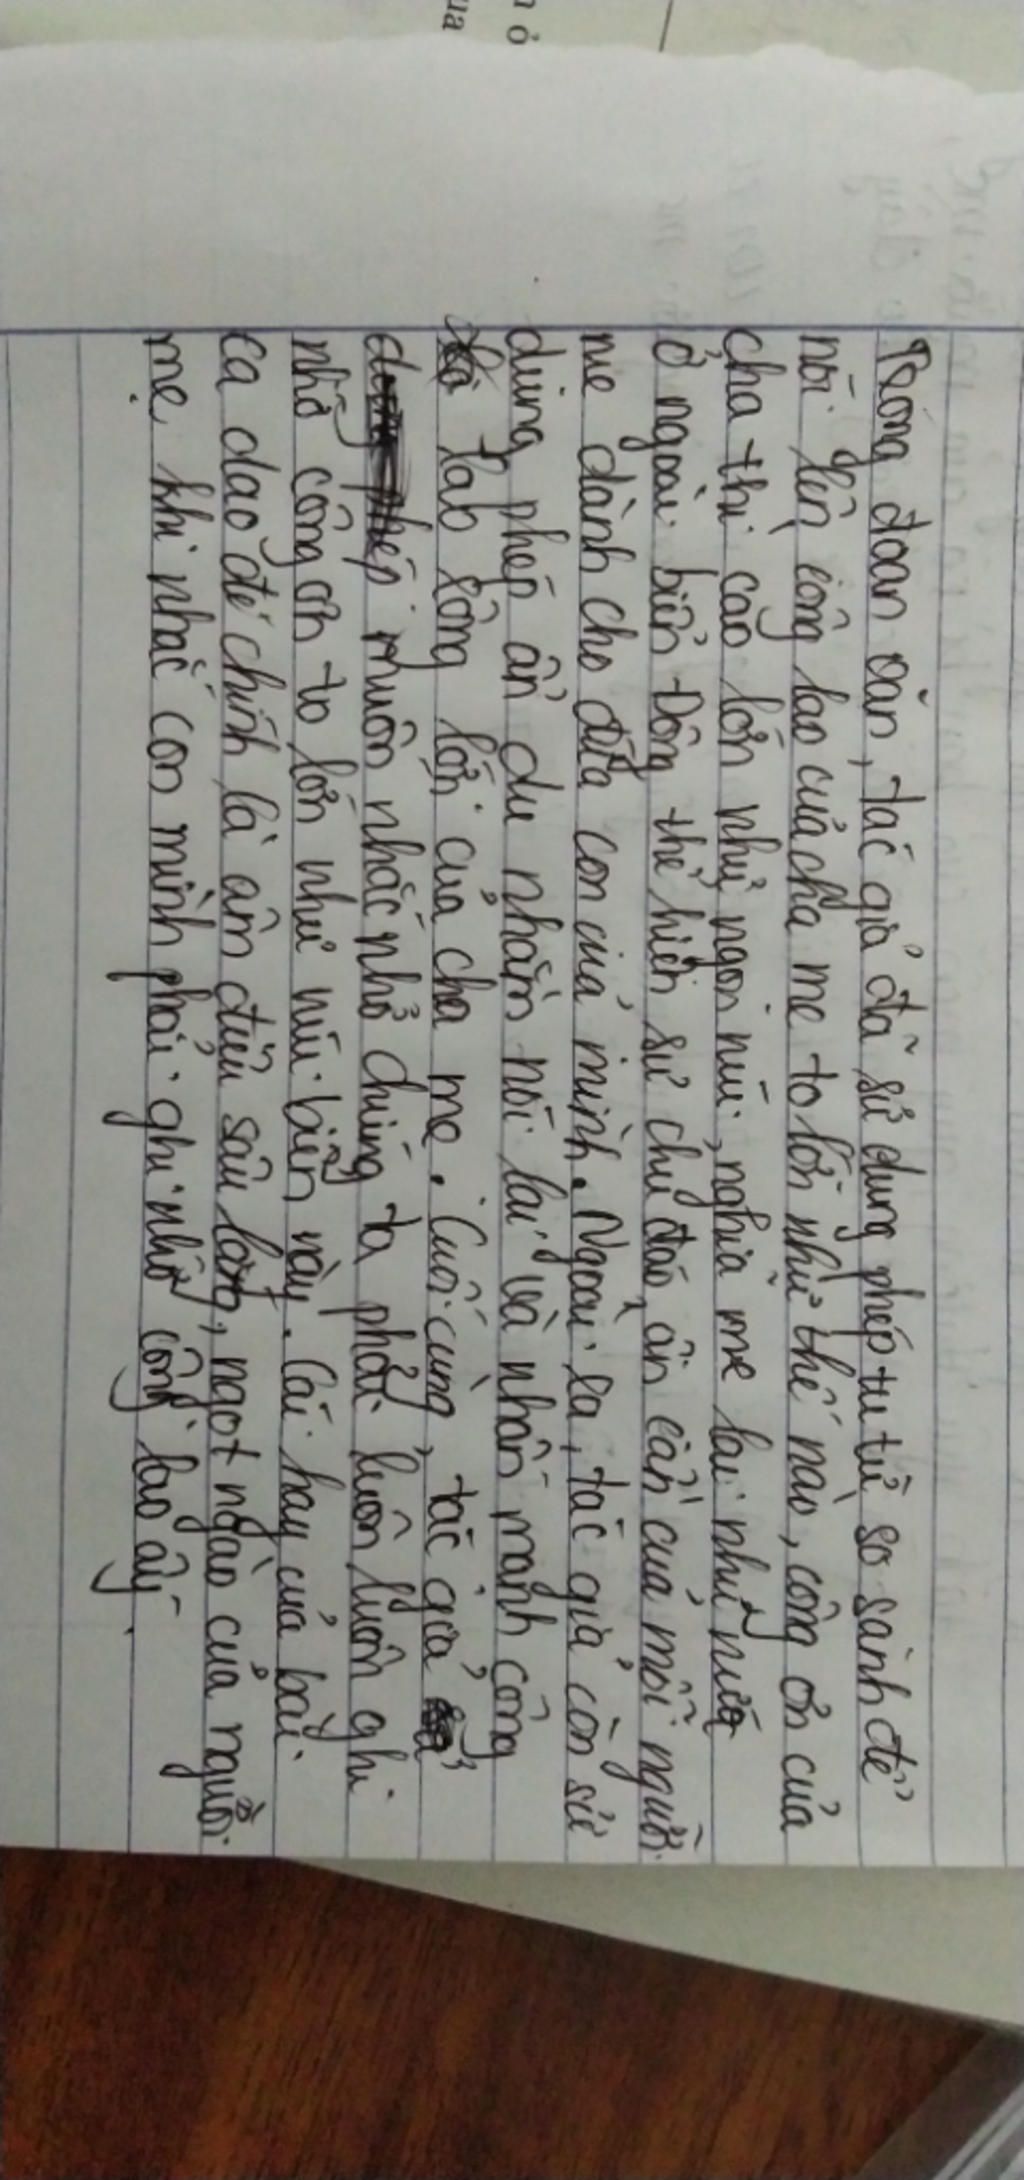 n ỏ
ua
Trong đoạn văn, tác giả đã sử dụng phép tu từ so sánh để
nói lên công lao của cha mẹ to lớn như thế nào, công ơn của
cha thì cao lớn như ngọn núi, nghĩa mẹ lại như nước
ở ngoài biển Đông thể hiện sự chu đáo, ân cần của mỗi người
mẹ dành cho đứa con của mình. Ngoài ra, tác giả còn sử
dụng phép ẩn dụ nhằm nói lại và nhấn mạnh công
lao lông lớn của cha mẹ. Cuối cùng, tác giả
muốn nhắc nhở chúng ta phải luôn luôn ghi
nhớ công ơn to lớn như núi biển này. Cái hay của bài
ca dao đề chính là âm điệu sâu lắng, ngọt ngào của người
mẹ khi nhắc con mình phải ghi nhớ công lao ấy.